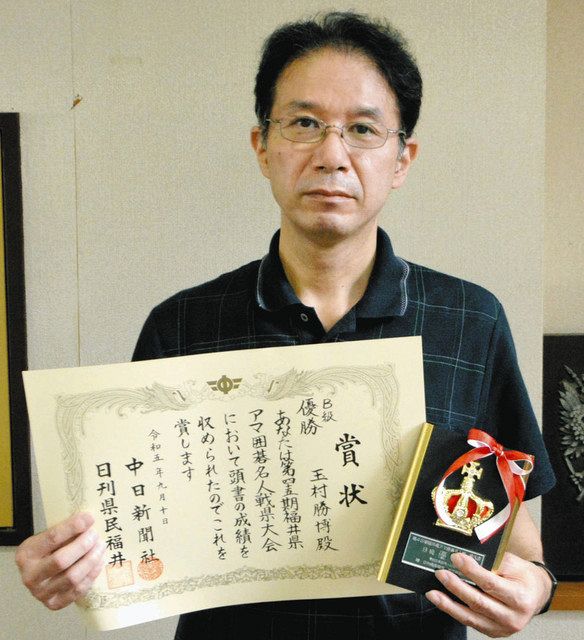 賞状
B級
優勝
玉村勝博殿
あなたは第四五期福井県
アマ囲碁名人戦県大会
において頭書の成績を
収められたのでこれを
賞します
令和五年九月十日
中日新聞社
日刊県民福井
B級 優